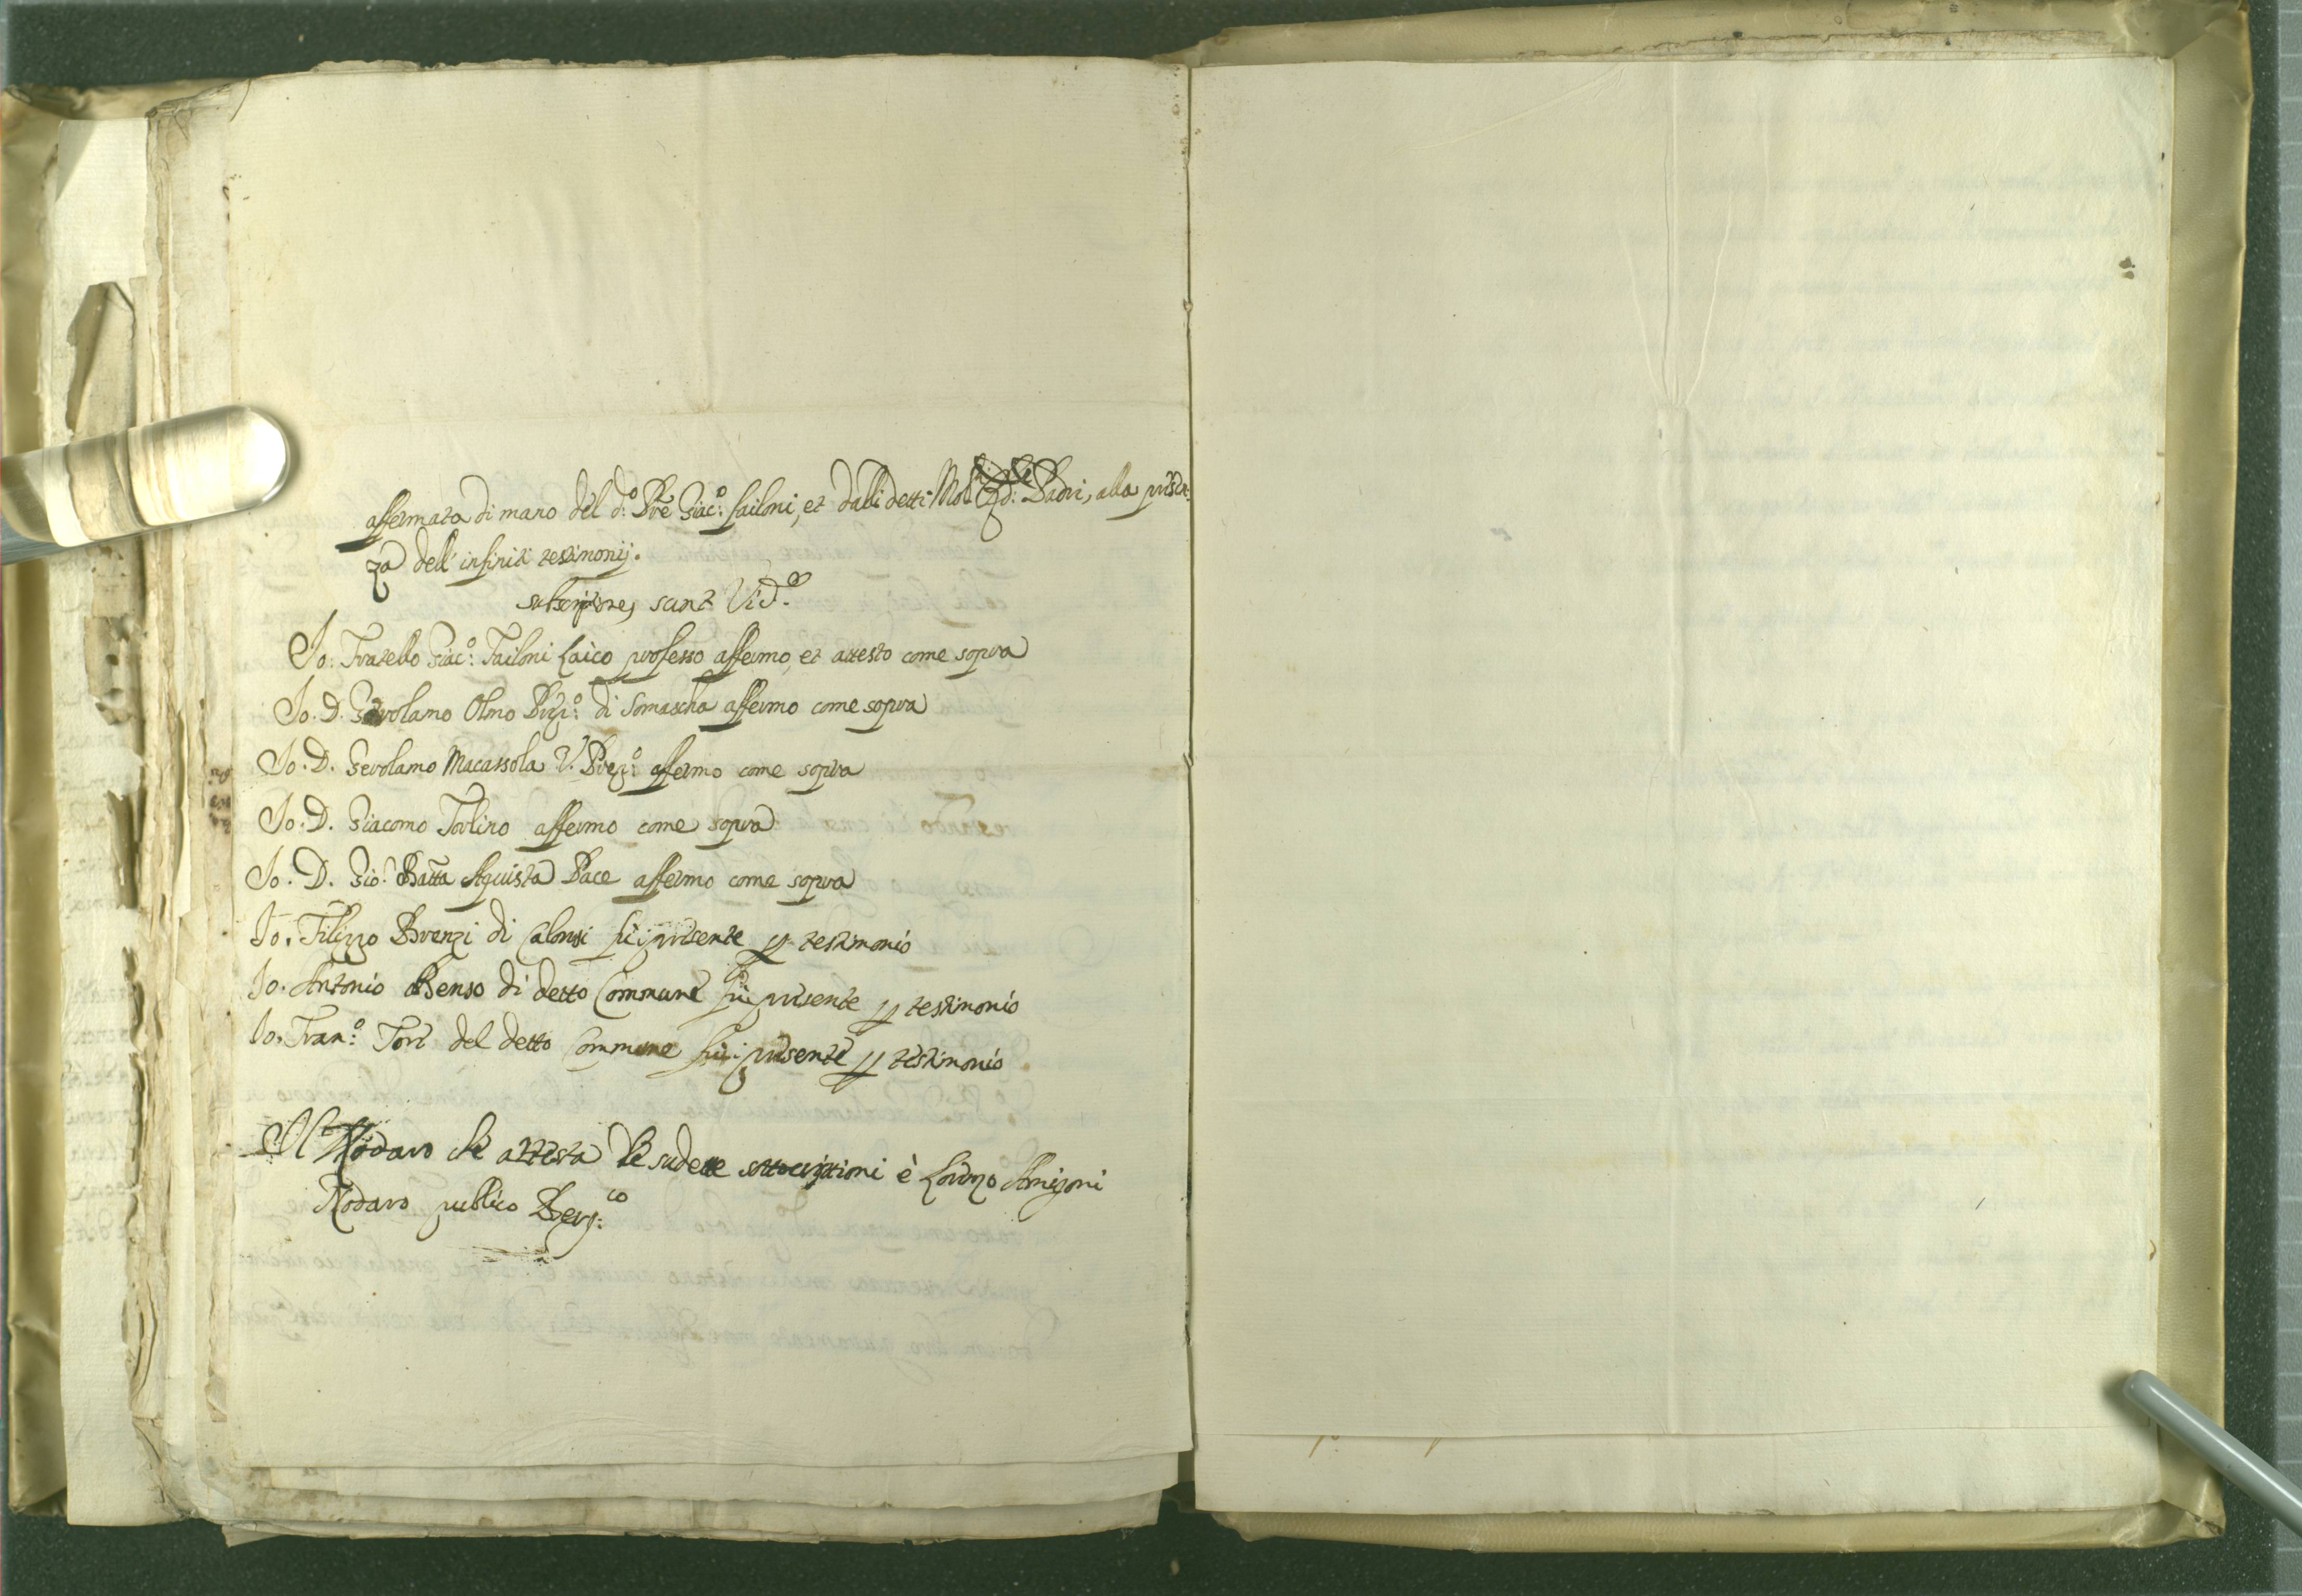 affermata di mano del d.º Pre Giac.º failoni, et dalli detti Mol. Rdi: Padri, alla presen
za dell' infriti testimonij.
subscriptiones sunt Vid.
Io: Fratello Giac.º Failoni Laico professo affermo, et attesto come sopra
Io. D. Gerolamo Olmo Prep.º di Somascha affermo come sopra
Io. D. Gerolamo Macassola V. Prep.º affermo come sopra
Io. D. Giacomo Torlino affermo come sopra
Io. D. Gio. Batta Aquista Pace affermo come sopra
Io. Filippo Brenzi di Calonsi fui presente p testimonio
Io. Antonio Benso di detto Commune fui presente p testimonio
Io. Fran.º Tori del detto Commune fui presente p testimonio
Il Nodaro che attesta le sudette sottoscrittioni è Lorenzo Amigoni
Nodaro publico Berg.co